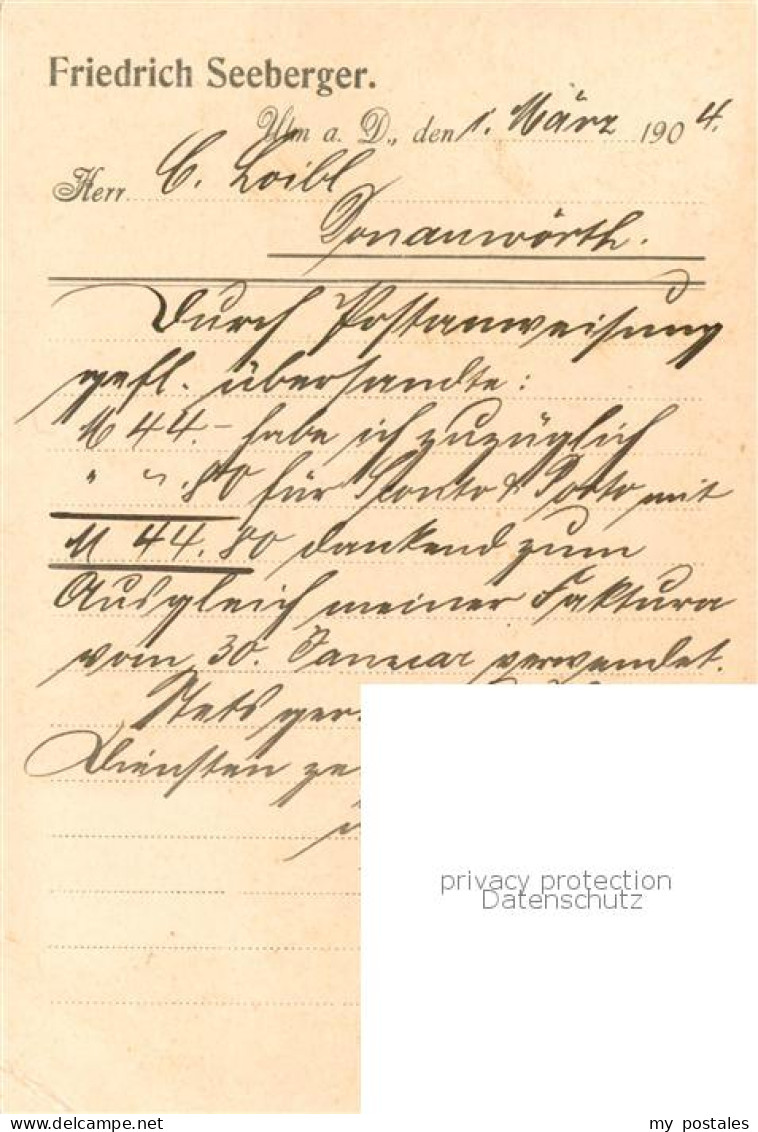 Friedrich Seeberger.
Ulm a. D., den 1. März 1904.
Herr C. Loibl
Donauwörth.
Durch Postanweisung
gefl. übersandte:
M 44.– habe ich zuzüglich
" –.80 für Sconto & Porto mit
M 44.80 dankend zum
Ausgleich meiner Faktura
vom 30. Januar verwendet.
Stets
Diensten
privacy protection
Datenschutz
www.delcampe.net
my_postales